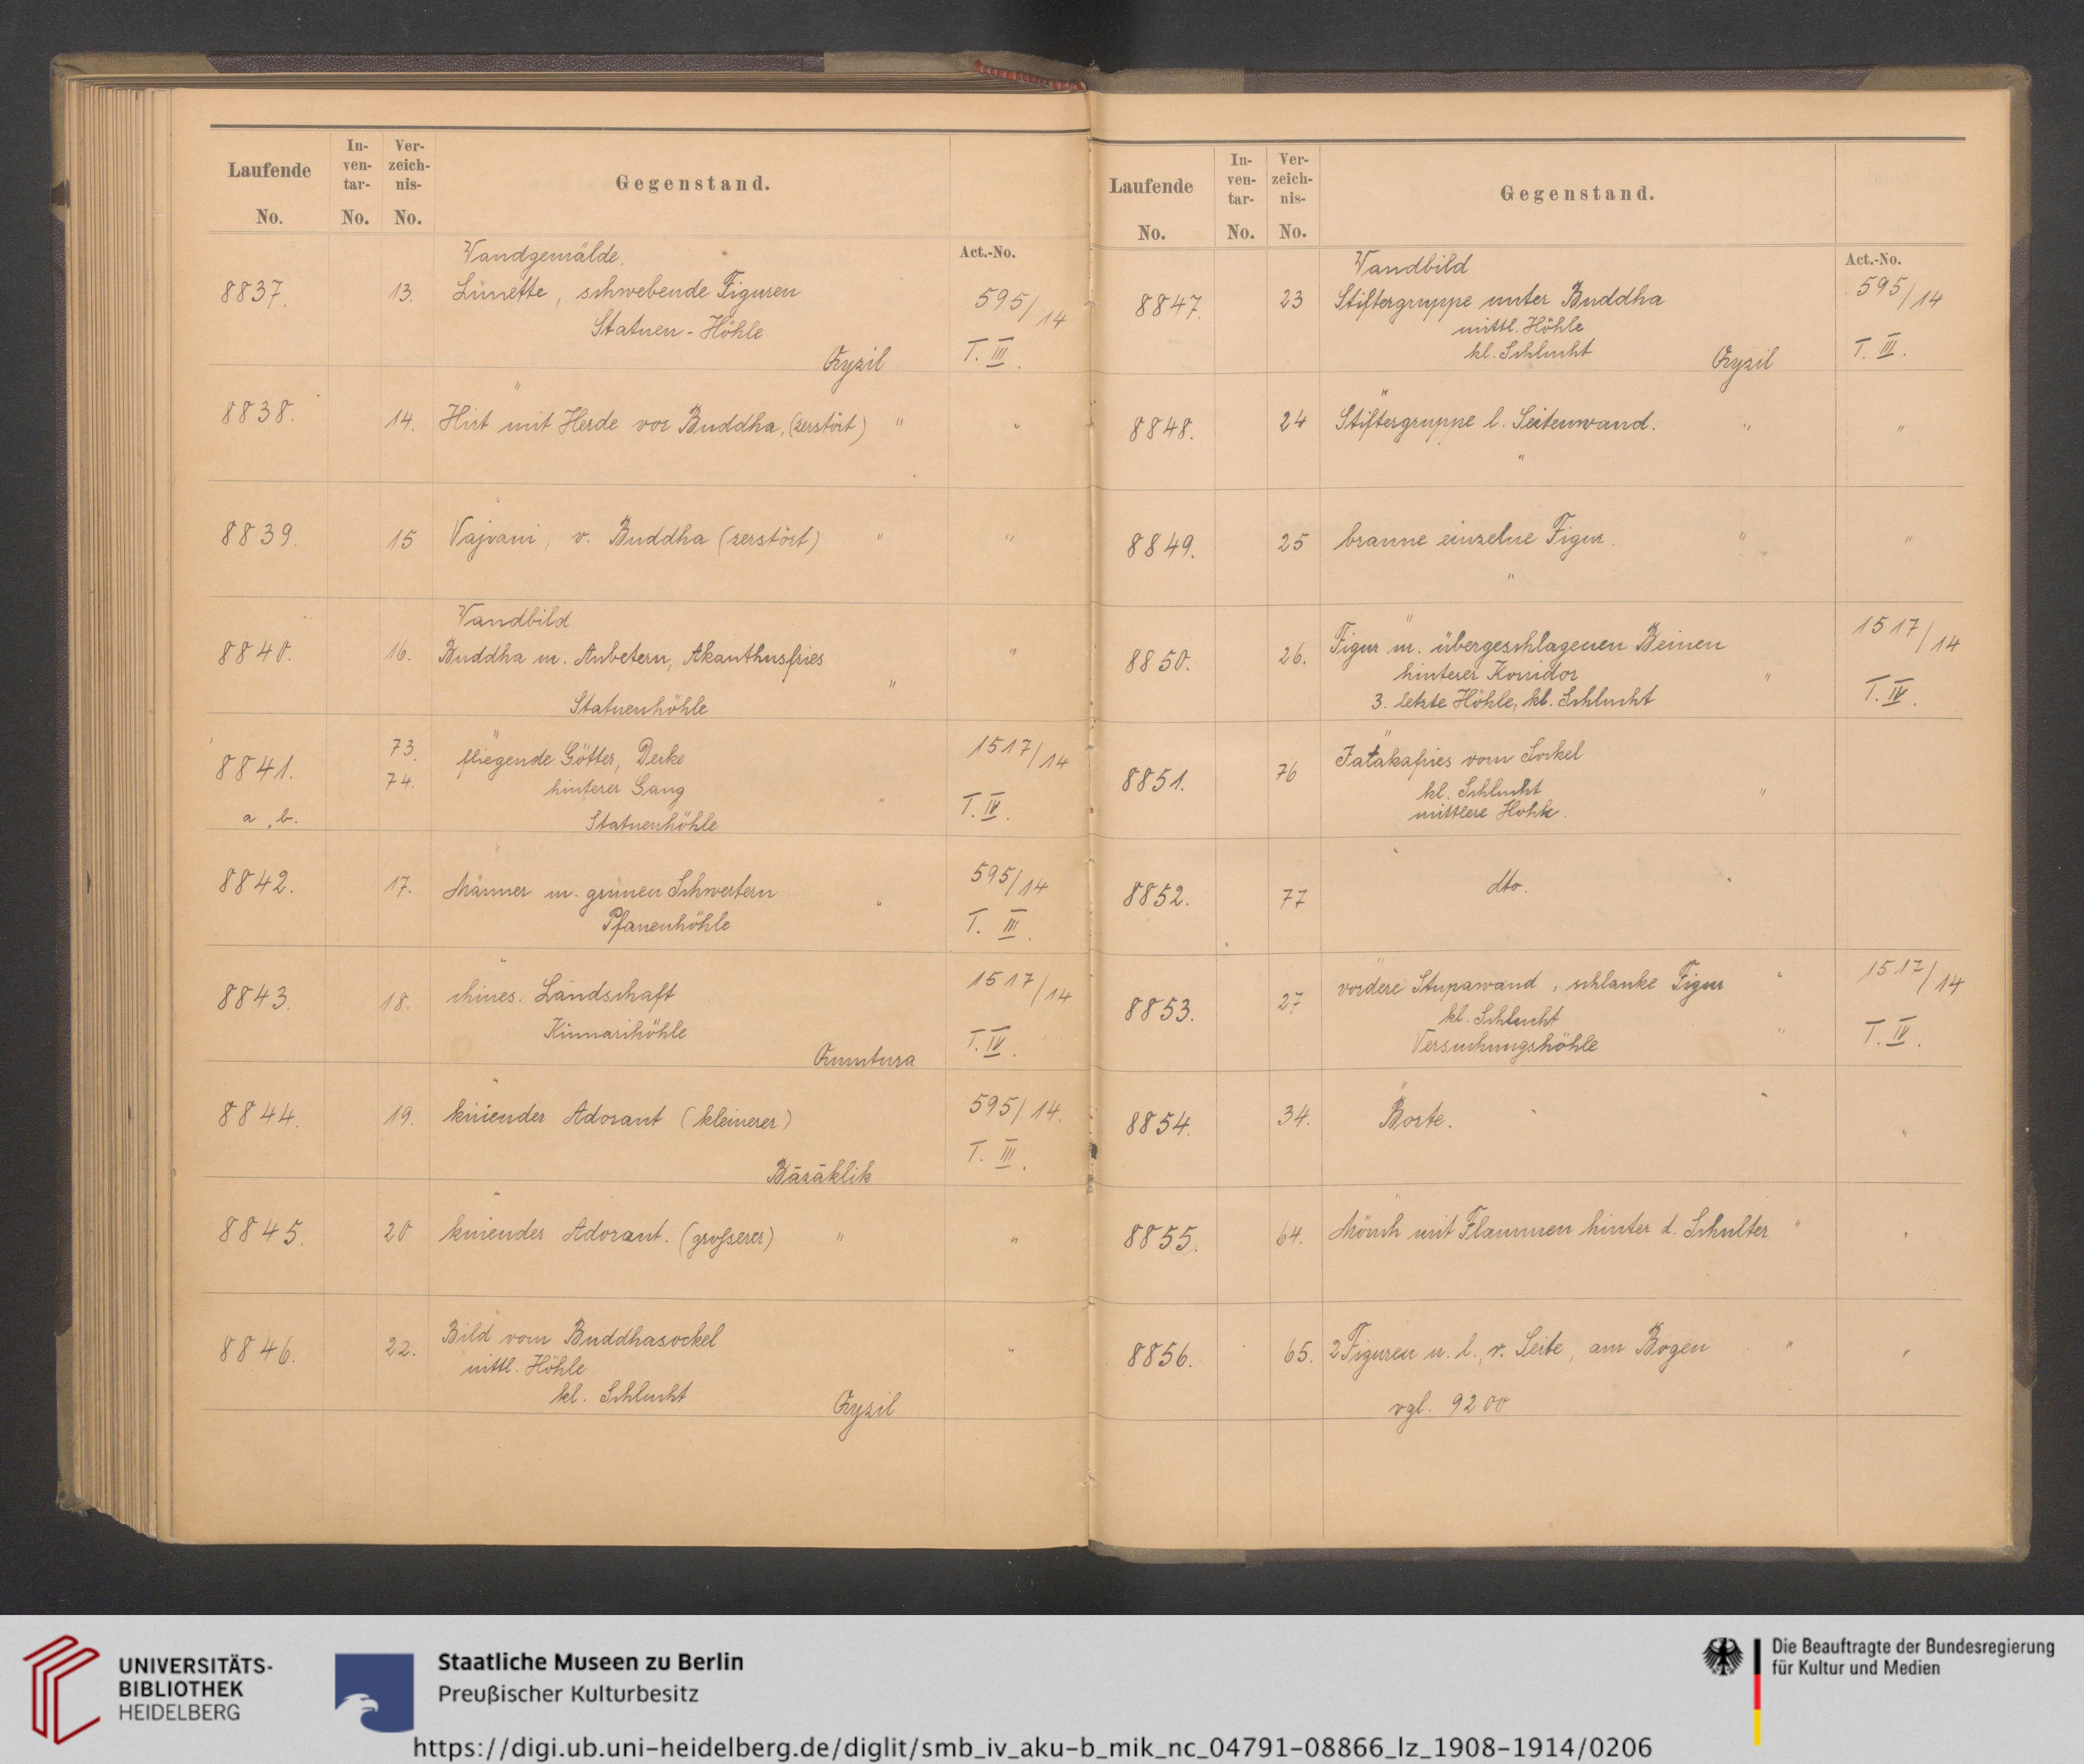 Laufende No.
In-ven-tar-No.
Ver-zeich-nis-No.
Gegenstand.
Act.-No.
Wandgemälde.
8837. 13. Lünette, schwebende Figuren 595/14
Statuen-Höhle
Qyzil T. III.
"
8838. 14. Hirt mit Herde vor Buddha, (zerstört) " "
"
8839. 15 Vajrani, v. Buddha (zerstört) " "
Wandbild
8840. 16. Buddha m. Anbetern, Akanthusfries "
"
Statuenhöhle
"
8841. 73. fliegende Götter, Decke 1517/14
74. hinterer Gang
a, b. Statuenhöhle " T. IV.
"
8842. 17. Männer m. grünen Schwertern " 595/14
Pfauenhöhle T. III.
"
8843. 18. chines. Landschaft 1517/14
Kinnarihöhle T. IV.
Qumtura
"
8844. 19. kniender Adorant (kleinerer) 595/14.
T. III.
Bäzäklik
"
8845. 20 kniender Adorant. (grosserer) " "
"
8846. 22. Bild vom Buddhasockel "
mittl. Höhle
kl. Schlucht
Qyzil
Laufende No.
In-ven-tar-No.
Ver-zeich-nis-No.
Gegenstand.
Act.-No.
Wandbild
8847. 23 Stiftergruppe unter Buddha 595/14
mittl. Höhle
kl. Schlucht Qyzil T. III.
"
8848. 24 Stiftergruppe l. Seitenwand. " "
"
"
8849. 25 braune einzelne Figur. " "
"
"
8850. 26. Figur m. übergeschlagenen Beinen 1517/14
hinterer Korridor "
3. letzte Höhle, kl. Schlucht T. IV.
"
8851. 76 Jatakafries vom Sockel
kl. Schlucht "
mittlere Höhle.
"
8852. 77 dto. "
"
8853. 27 vordere Stupawand, schlanke Figur " 1517/14
kl. Schlucht
Versuchungshöhle " T. IV.
"
8854. 34. Borte. " " "
"
8855. 64. Mönch mit Flammen hinter d. Schulter " "
"
8856. 65. 2 Figuren u. l., r. Seite, am Bogen " "
vgl. 9200
UNIVERSITÄTS-
BIBLIOTHEK
HEIDELBERG
Staatliche Museen zu Berlin
Preußischer Kulturbesitz
Die Beauftragte der Bundesregierung
für Kultur und Medien
https://digi.ub.uni-heidelberg.de/diglit/smb_iv_aku-b_mik_nc_04791-08866_lz_1908-1914/0206